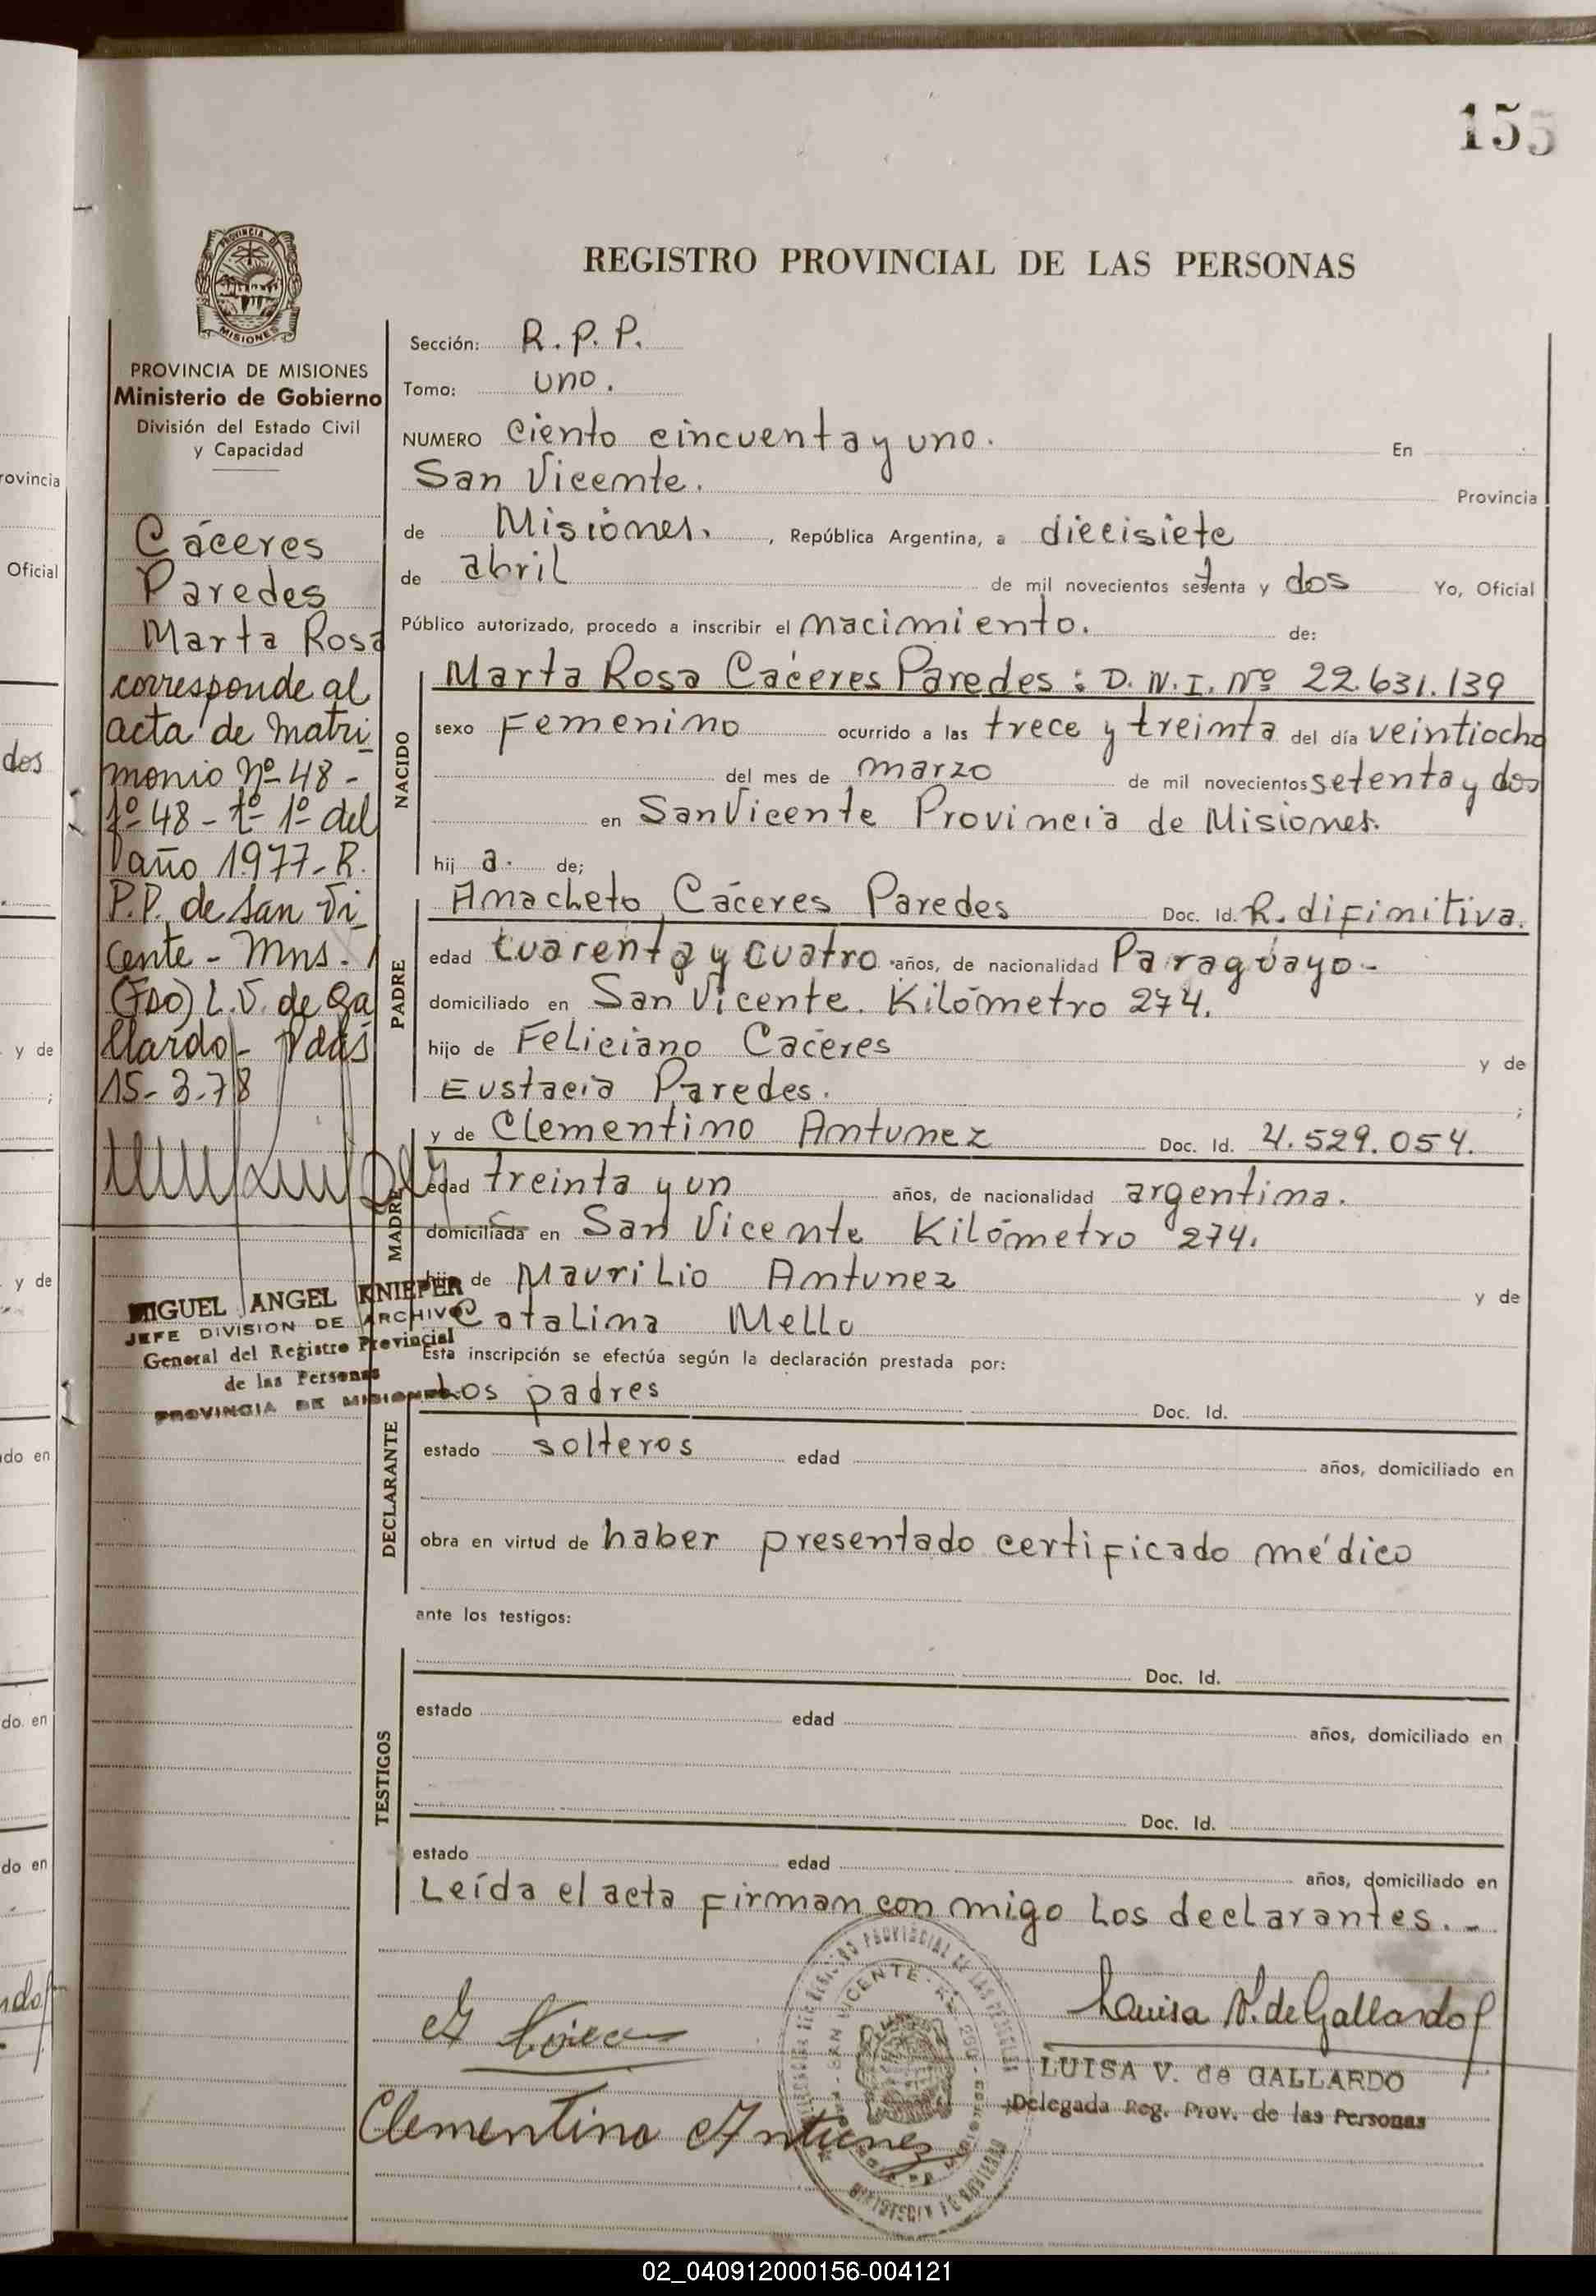 155
REGISTRO PROVINCIAL DE LAS PERSONAS
PROVINCIA DE
MISIONES
PROVINCIA DE MISIONES
Ministerio de Gobierno
División del Estado Civil
y Capacidad
Cáceres
Paredes
Marta Rosa
corresponde al
acta de matri
monio Nº 48 -
fº 48 - tº 1º del
año 1977 - R.
P.P. de San Vi
cente - Mns.
(FDO) L.V. de Ga
llardo - Pdas
15-3-78
MIGUEL ANGEL KNIEPER
JEFE DIVISION DE ARCHIVO
General del Registro Provincial
de las Personas
PROVINCIA DE MISIONES
Sección: R. P. P.
Tomo: uno.
NUMERO Ciento cincuenta y uno. En
San Vicente. Provincia
de Misiones. , República Argentina, a diecisiete
de abril de mil novecientos setenta y dos Yo, Oficial
Público autorizado, procedo a inscribir el nacimiento. de:
NACIDO
Marta Rosa Cáceres Paredes : D.N.I. Nº 22.631.139
sexo Femenino ocurrido a las trece y treinta del día veintiocho
del mes de marzo de mil novecientos setenta y dos
en San Vicente Provincia de Misiones.
hij a. de;
PADRE
Anacheto Cáceres Paredes Doc. Id. R. difinitiva.
edad cuarenta y cuatro años, de nacionalidad Paraguayo-
domiciliado en San Vicente. Kilómetro 274.
hijo de Feliciano Caceres y de
Eustacia Paredes. ;
MADRE
y de Clementino Antunez Doc. Id. 4.529.054.
edad treinta y un años, de nacionalidad argentina.
domiciliada en San Vicente Kilómetro 274.
hija de Maurilio Antunez y de
Catalina Mello
Esta inscripción se efectúa según la declaración prestada por:
DECLARANTE
Los padres Doc. Id.
estado solteros edad años, domiciliado en
obra en virtud de haber presentado certificado médico
ante los testigos:
TESTIGOS
Doc. Id.
estado edad años, domiciliado en
Doc. Id.
estado edad años, domiciliado en
Leída el acta firman con migo Los declarantes. -
Luisa V. de Gallardo
LUISA V. de GALLARDO
Delegada Reg. Prov. de las Personas
Clementina Antunez
rovincia
Oficial
dos
y de
;
y de
do en
do en
do en
02_040912000156-004121